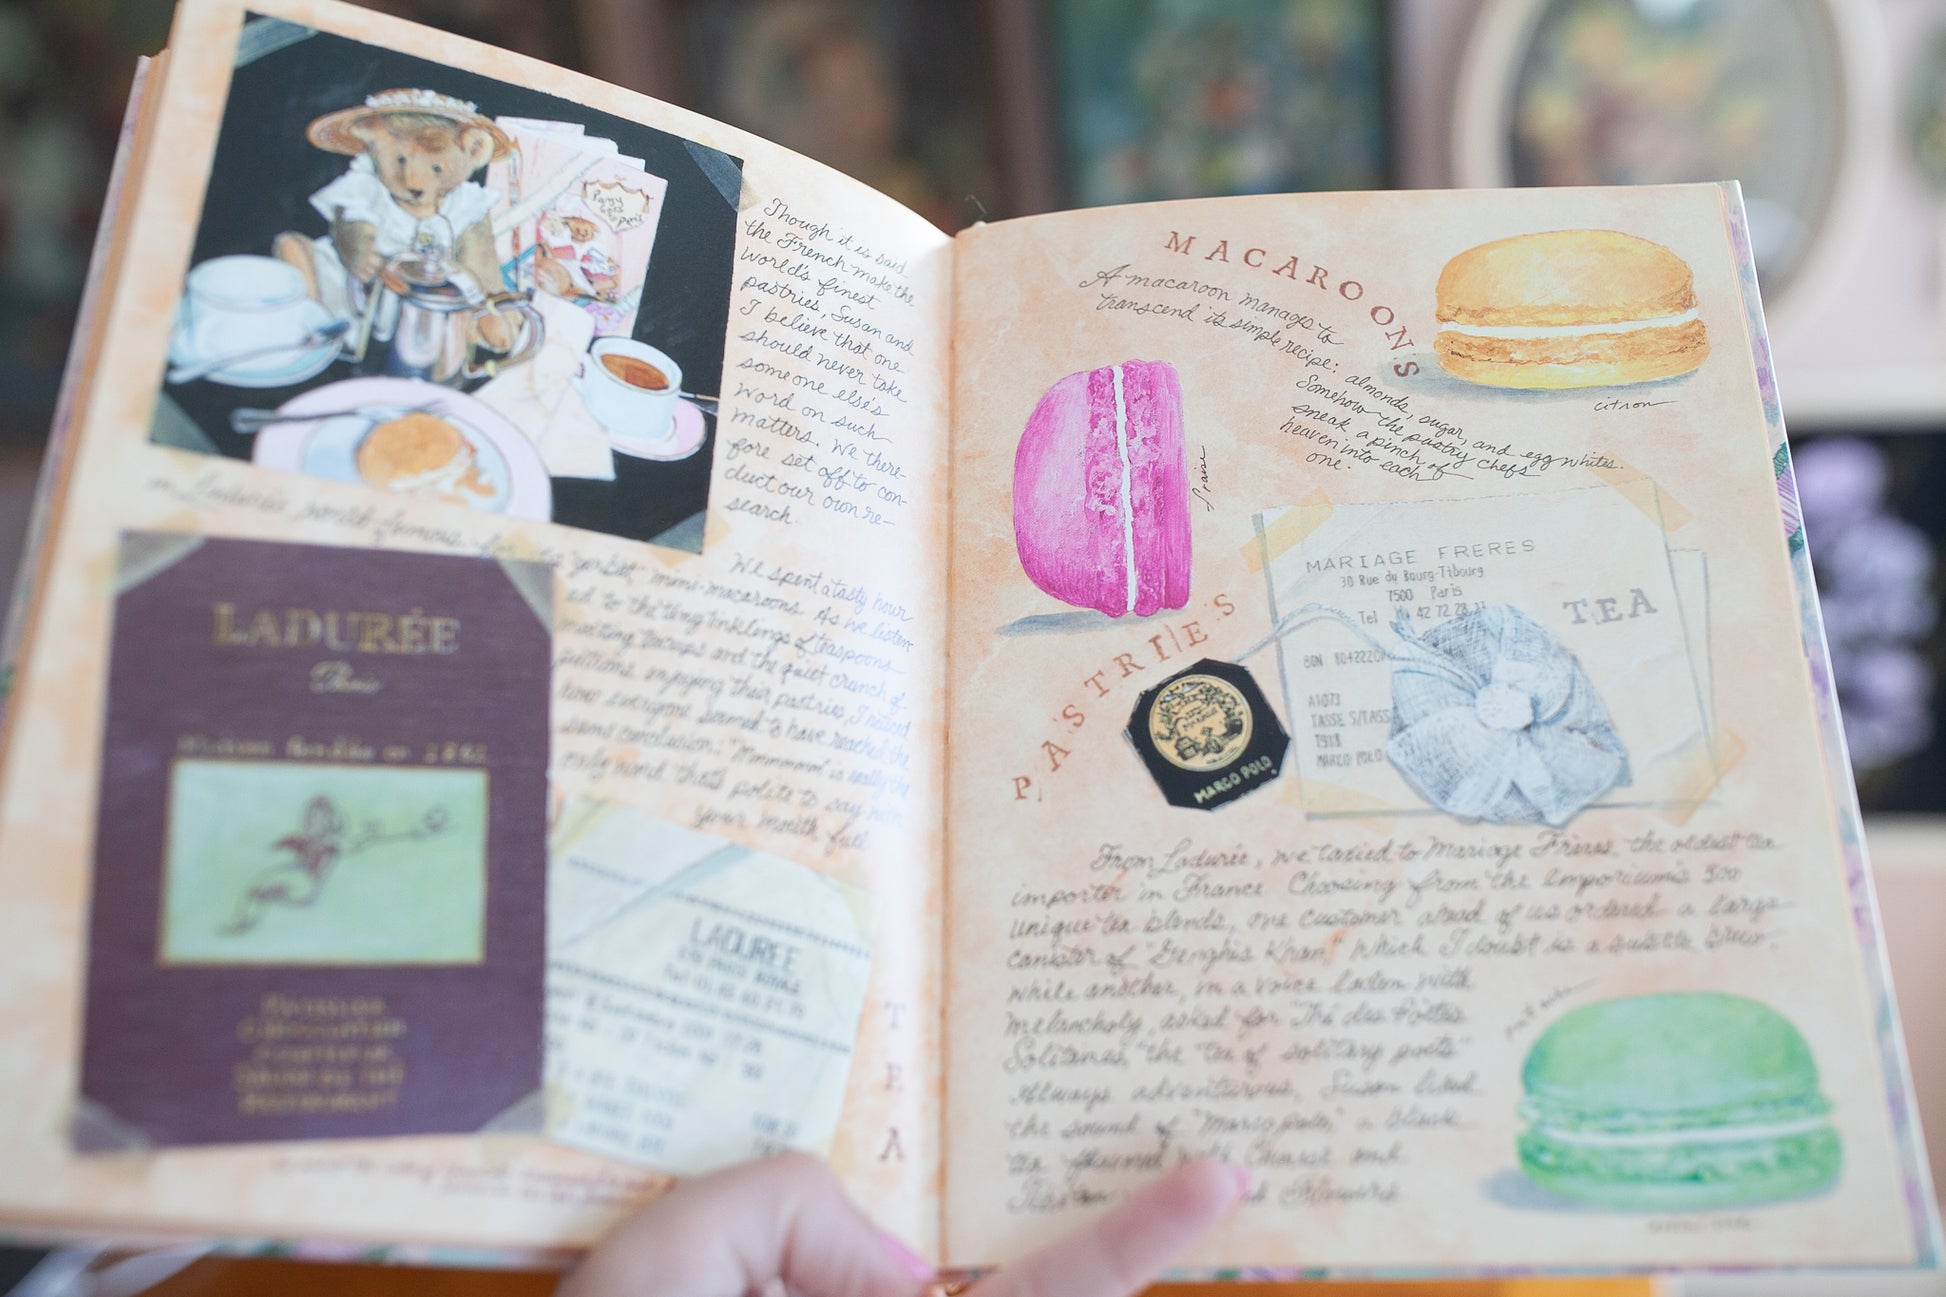 Though it is said
the French make the
world's finest
pastries, Susan and
I believe that one
should never take
someone else's
word on such
matters. We there-
fore set off to con-
duct our own re-
search.
We spent a tasty hour
in Ladurée, world famous for its "sorbet" mini-macaroons. As we listen-
ed to the ting tinklings of teaspoons
meeting teacups and the quiet crunch of
patrons enjoying their pastries, I noticed
how everyone seemed to have reached the
same conclusion: "Mmmmmm" is really the
only word that's polite to say with
your mouth full.
LADURÉE
Paris
LADURÉE
TEA
MACAROONS
A macaroon manages to
transcend its simple recipe: almonds, sugar, and egg whites.
Somehow the pastry chefs
sneak a pinch of
heaven into each
one.
citron
fraise
PASTRIES
MARIAGE FRERES
30 Rue du Bourg-Tibourg
7500 Paris
Tel 42 72 28 11
TEA
A1073
TASSE S/TASS
T918
MARCO POLO
MARCO POLO
From Ladurée, we taxied to Mariage Frères, the oldest tea
importer in France. Choosing from the emporium's 500
unique tea blends, one customer ahead of us ordered a large
canister of "Genghis Khan," which I doubt is a subtle brew,
while another, in a voice laden with
melancholy, asked for "Thé des Poètes
Solitaires," the "tea of solitary poets."
Always adventurous, Susan liked
the sound of "Marco Polo," a black
tea flavored with Chinese and
Tibetan flowers.